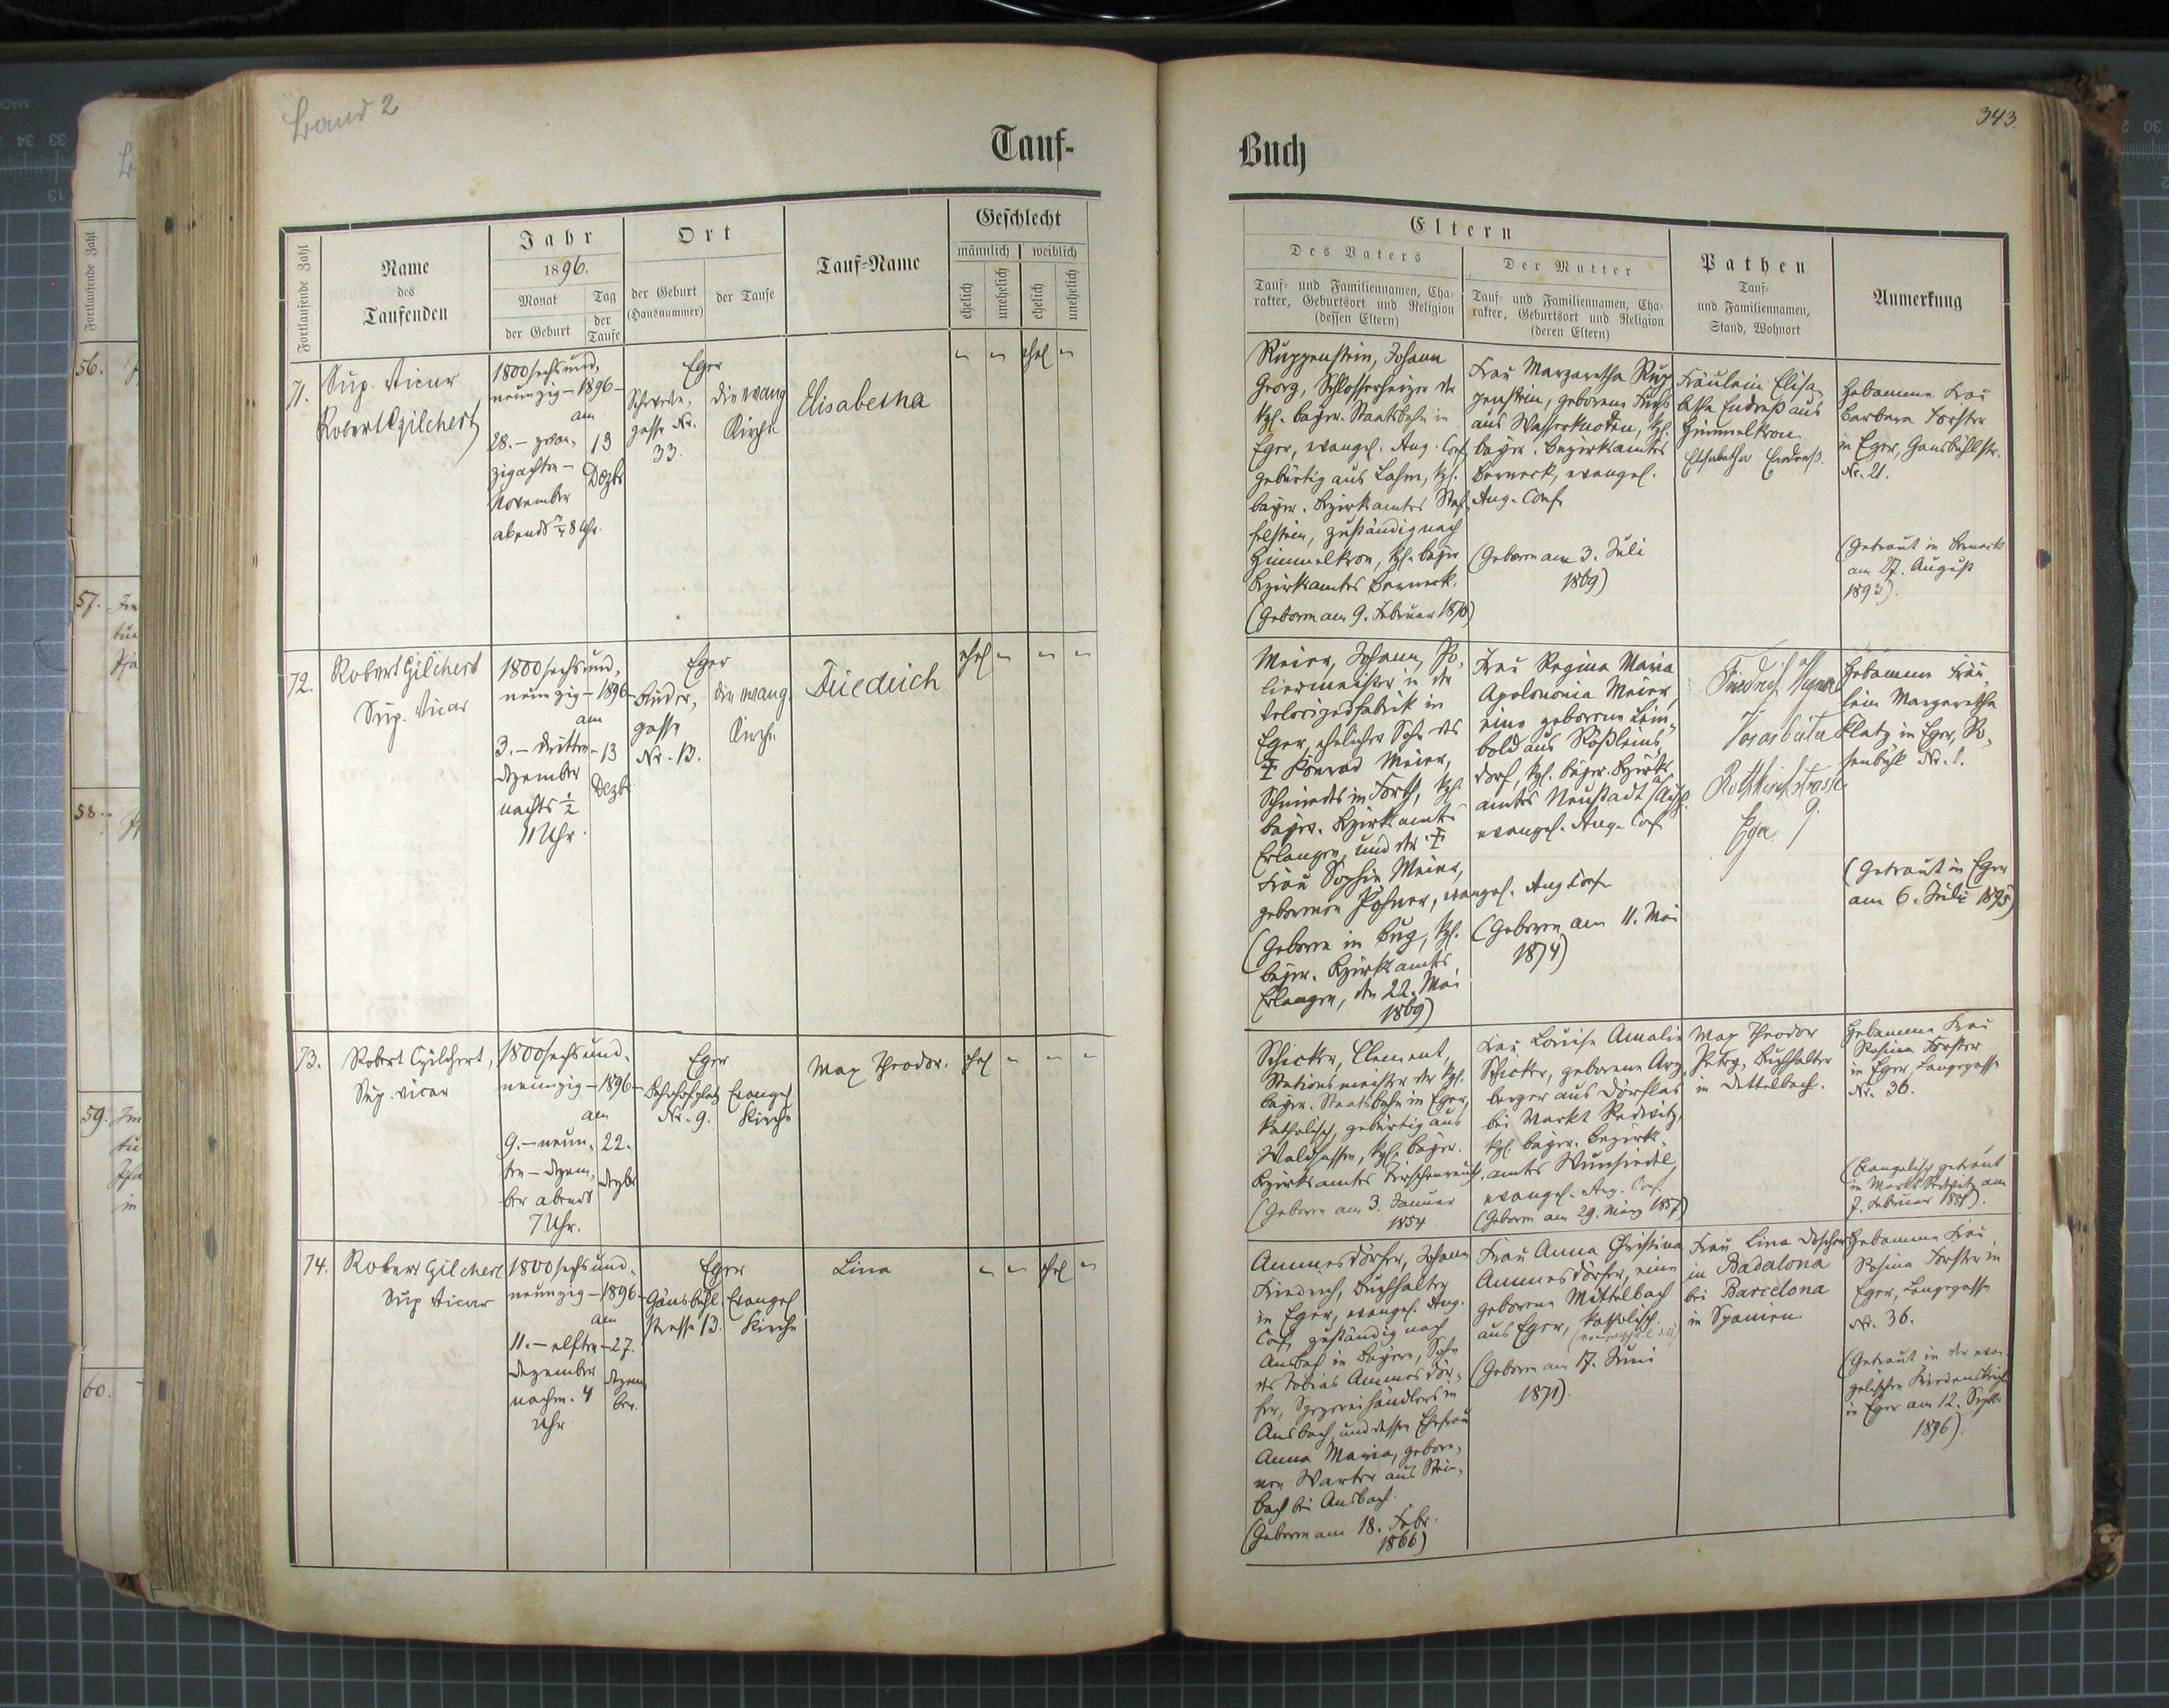 Band 2
343.
Tauf-
Buch
Fortlaufende Zahl
Name
des
Taufenden
Jahr
1896.
Monat
der Geburt
Tag
der
Taufe
Ort
der Geburt
(Hausnummer)
der Taufe
Tauf-Name
Geschlecht
männlich
weiblich
ehelich
unehelich
ehelich
unehelich
Eltern
Des Vaters
Tauf- und Familiennamen, Cha-
rakter, Geburtsort und Religion
(dessen Eltern)
Der Mutter
Tauf- und Familiennamen, Cha-
rakter, Geburtsort und Religion
(deren Eltern)
Pathen
Tauf-
und Familiennamen,
Stand, Wohnort
Anmerkung
71.
Sup. Vicar
Robert Gilchert
1800 sechsund-
neunzig - 1896 -
am
28. - zwan-
zigachten -
November
abends ¾ 8 Uhr.
13
Dezbr
Eger
gasse Nr.
33.
die evang
Kirche
Elisabetha
ehel
Ruppenstein, Johann
Georg, Schlosserheizer der
kgl. bayer. Staatsbahn in
Eger, evangel. Aug. Conf.
gebürtig aus Lahm, kgl.
bayer. Bezirksamtes Staf-
felstein, zuständig nach
Himmelkron, kgl. bayer
Bezirksamtes Berneck.
(Geboren am 9. Februar 1870)
Frau Margaretha Rup-
penstein, geborene Fuchs
aus Wasserknoden, kgl.
bayer. Bezirksamtes
Berneck, evangel.
Aug. Conf.
(Geboren am 3. Juli
1869)
Fräulein Elisa-
betha Endreß aus
Himmelkron
Elisabetha Endreß.
Hebamme Frau
Barbara Forster
in Eger, Gansbühlstr.
Nr. 21.
(Getraut in Berneck
am 27. August
1893).
72.
Robert Gilchert
Sup. Vicar
1800 sechsund-
neunzig - 1896 -
am
3. - dritten -
Dezember
nachts ½
11 Uhr.
13
Dezbr
Eger
Bruder-
gasse
Nr. 13.
die evang.
Kirche
Friedrich
ehel
Meier, Johann, Po-
liermeister in der
Velocipedfabrik in
Eger, ehelicher Sohn des
‡ Konrad Meier,
Schmieds in Forth, kgl.
bayer. Bezirksamt
Erlangen, und der ‡
Frau Sophie Meier,
geborenen Pohner, evangel. Aug Conf.
(Geboren in Bug, kgl.
bayer. Bezirksamtes
Erlangen, den 22. Mai
1869)
Frau Regina Maria
Apolonia Meier,
eine geborene Lein-
bold aus Rößleins-
dorf, kgl. bayer. Bezirks
amtes Neustadt / Aisch.
evangel. Aug. Conf
(Geboren am 11. Mai
1874)
Friedrich Wagner
Vorarbeiter
9.
Eger
Hebamme Fräu-
lein Margaretha
Platz in Eger, Ro-
senbühl Nr. 1.
(Getraut in Eger
am 6. Juli 1895)
73.
Robert Gilchert,
Sup. vicar
1800 sechsund-
neunzig - 1896 -
am
9. - neun-
ten - Dezem-
ber abends
7 Uhr.
22.
Dezbr
Eger
Bahnhofplatz
Nr. 9.
Evangel
Kirche
Max Theodor.
ehel
Schicker, Clement,
Stationsmeister der kgl.
bayer. Staatsbahn in Eger,
katholisch, gebürtig aus
Waldsassen, kgl. bayer.
Bezirksamtes Tirschenreuth.
(Geboren am 3. Januar
1854
Frau Louise Amalie
Schicker, geborene Arz-
berger aus Dörflas
bei Markt Redwitz,
kgl. bayer. Bezirks-
amtes Wunsiedel,
evangel. Aug. Conf.
(Geboren am 29. März 1857)
Max Theodor
Petry, Buchhalter
in Dettelbach.
Hebamme Frau
Rosina Forster
in Eger, Langegasse
Nr. 36.
(Evangelisch getraut
in Markt Redwitz am
7. Februar 1881).
74.
Robert Gilchert
Sup Vicar
1800 sechsund-
neunzig - 1896 -
am
11. - elften -
Dezember
nachm. 4
Uhr
27.
Dezem
ber.
Eger
Gänsbühl-
strasse 13.
Evangel
Kirche
Lina
ehel
Ammesdörfer, Johann
Friedrich, Buchhalter
in Eger, evangel. Aug.
Conf, zuständig nach
Ansbach in Bayern, Sohn
des Tobias Ammesdör-
fer, Spezereihändlers in
Ansbach, und dessen Ehefrau
Anna Maria, gebore-
nen Warter aus Stein-
bach bei Ansbach.
(Geboren am 18. Febr.
1866)
Frau Anna Christina
Ammesdörfer, eine
geborene Mittelbach
aus Eger, katholisch.
(Geboren am 17. Juni
1871).
Frau Lina Doscher
in Badalona
bei Barcelona
in Spanien
Hebamme Frau
Rosina Forster in
Eger, Langegasse
Nr. 36.
(Getraut in der evan-
gelischen Friedenskirche
in Eger am 12. Septbr
1896).
56.
57.
58.
59.
60.